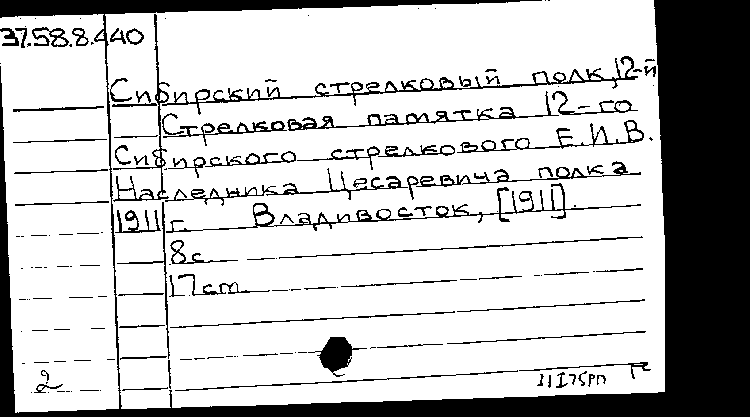 37.58.8.440
Сибирский стрелковый полк, 12-й
Стрелковая памятка 12-го
Сибирского стрелкового Е.И.В.
Наследника Цесаревича полка
1911 г. Владивосток, [1911].
8 с.
17 cm.
2